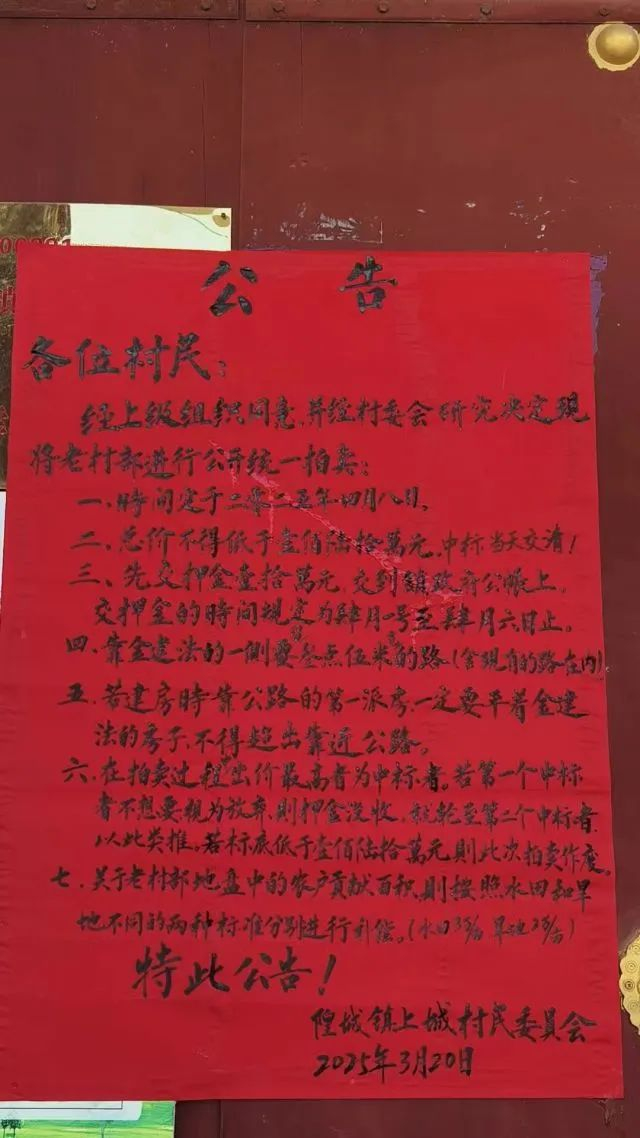 公告
各位村民：
经上级组织同意，并经村委会研究决定现
将老村部进行公开统一拍卖：
一、時间定于二零二五年四月八日。
二、总价不得低于壹佰陆拾萬元，中标当天交清！
三、先交押金壹拾萬元，交到鎮政府公帐上，
交押金的時间规定为肆月1号至肆月六日止。
四、靠金建法的一側要叁点伍米的路（含現有的路在内）
五、若建房時靠公路的第一派房，一定要平着金建
法的房子，不得超出靠近公路。
六、在拍卖过程出价最高者为中标者。若第一个中标
者不想要視为放弃，则押金没收，就轮至第二个中标者，
以此类推。若标底低于壹佰陆拾萬元，则此次拍卖作废。
七、关于老村部地盘中的农户贡献面积，则按照水田和旱
地不同的两种标准分别进行补偿。（水田
特此公告！
隍城镇上城村民委员会
2025年3月20日